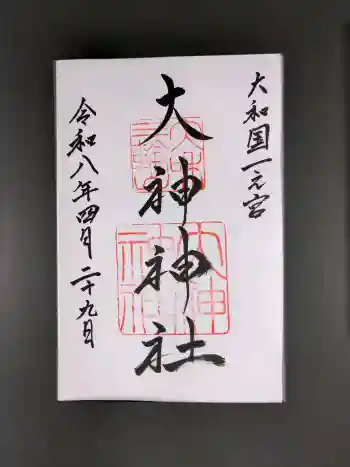 大和国一之宮
大神神社
令和八年四月二十九日